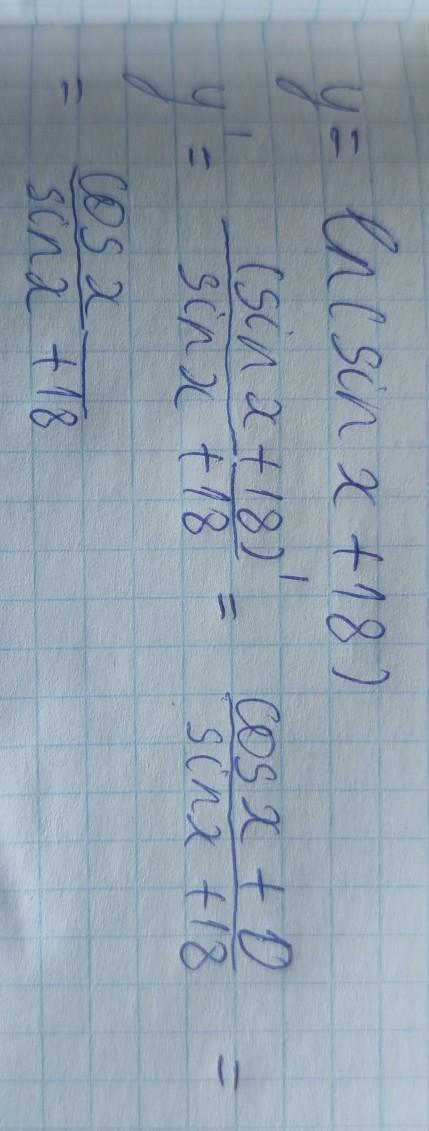 y = ln(sin x + 18)
y' = (sin x + 18)' / sin x + 18 = cos x + 0 / sin x + 18 =
= cos x / sin x + 18